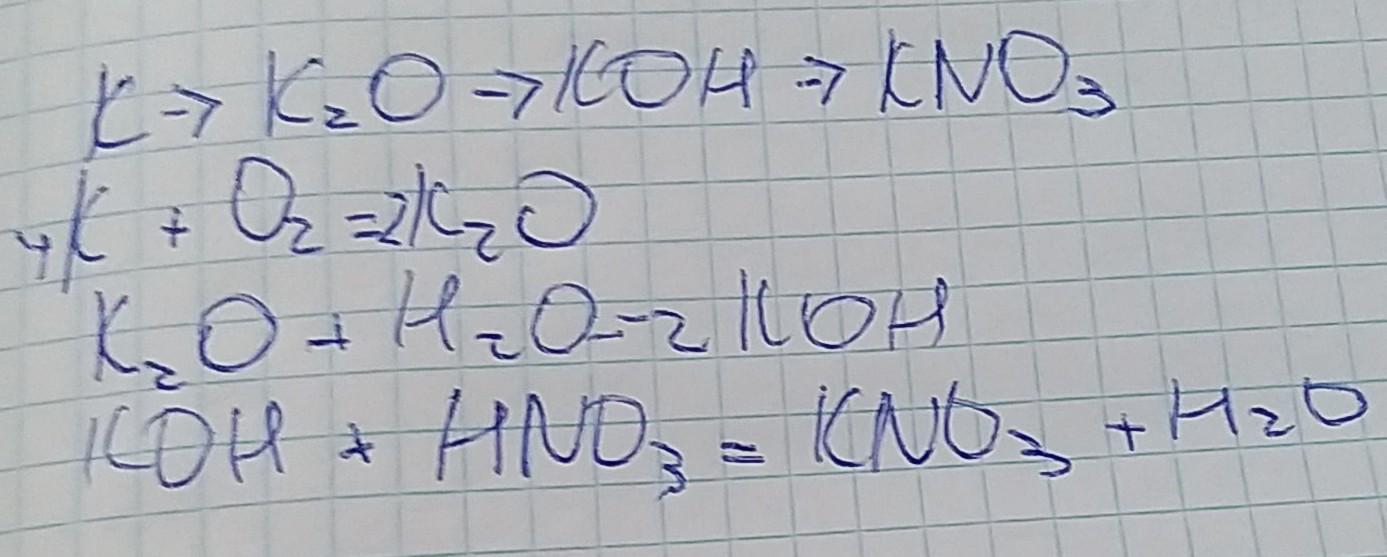 K → K₂O → KOH → KNO₃
4K + O₂ = 2K₂O
K₂O + H₂O = 2KOH
KOH + HNO₃ = KNO₃ + H₂O